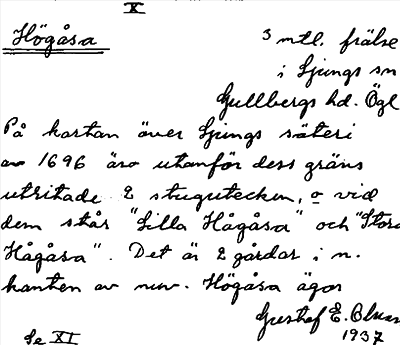 X
Högåsa
3 mtl. frälse
i Ljungs sn
Gullbergs hd. Ögl
På kartan över Ljungs säteri
av 1696 äro utanför dess gräns
utritade 2 stugutecken, o vid
dem står "Lilla Hågåsa" och "Stora
Hågåsa". Det är 2 gårdar i n.
kanten av nuv. Högåsa ägor
Gustaf E.
1937
Se XI